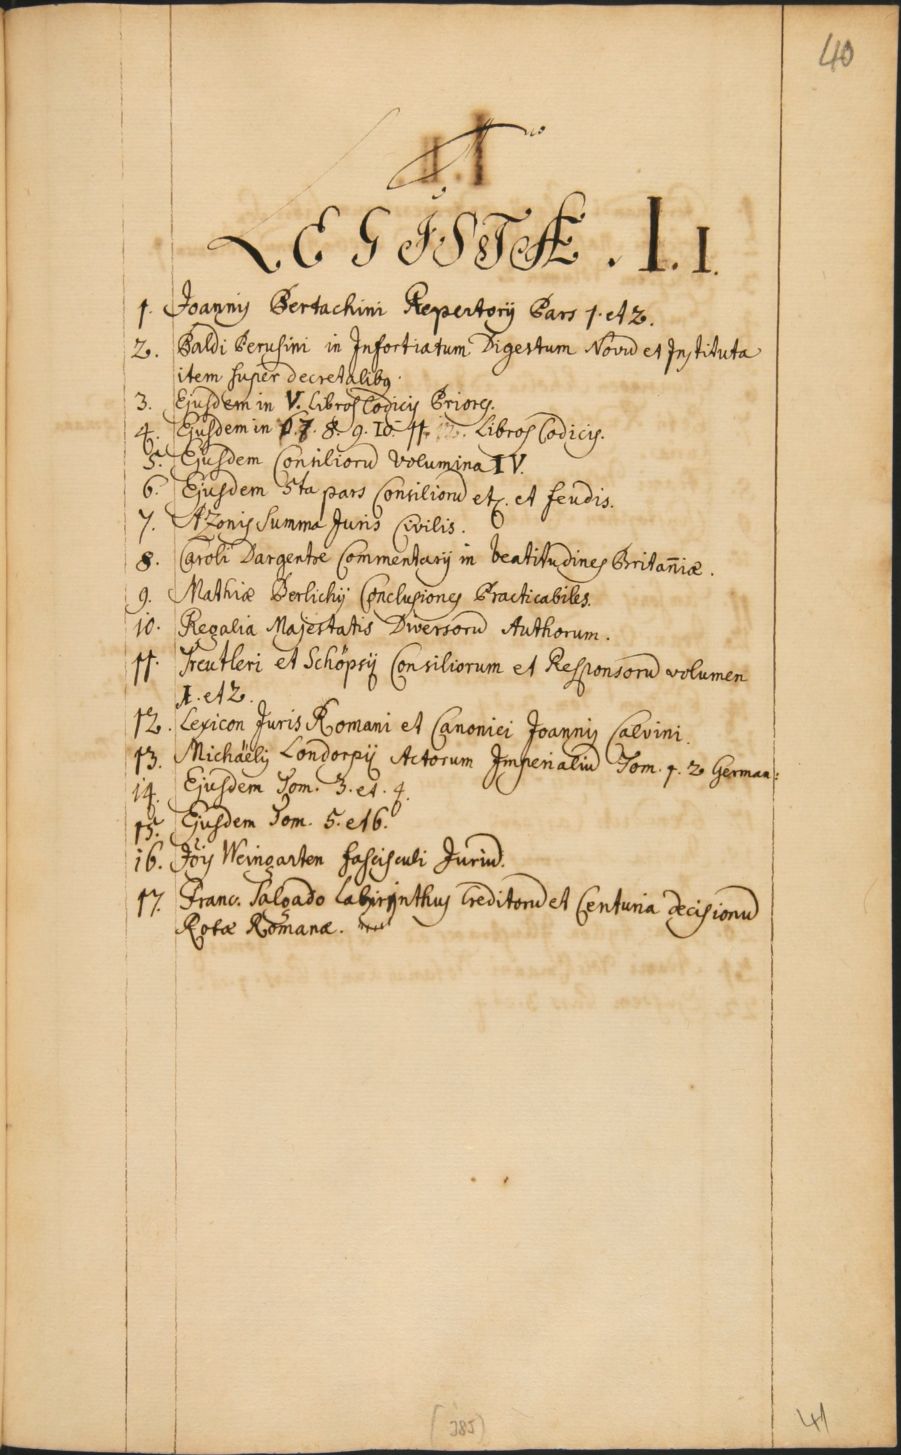 40
LEGISTÆ . I. I.
1. Joannis Bertachini Repertorij Pars 1. et 2.
2. Baldi Perusini in Infortiatum Digestum Novũ et Instituta
item super decretalibꝫ.
3. Ejusdem in V. Libros Codicis Priores.
4. Ejusdem in 6. 7. 8. 9. 10. 11. 12. Libros Codicis.
5. Ejusdem Consiliorũ Volumina IV.
6. Ejusdem 5ta pars Consiliorũ etc. et feudis.
7. AZonis Summa Juris Civilis.
8. Caroli Dargentre Commentarij in beatitudines Britan̄iæ.
9. Mathiæ Berlichij Conclusiones Practicabiles.
10. Regalia Majestatis Diversorũ Authorum.
11. Treutleri et Schöpsij Consiliorum et Responsorũ volumen
1. et 2.
12. Lexicon Juris Romani et Canonici Joannis Calvini.
13. Michäelis Londorpij Actorum Imperialiũ Tom. 1. 2 German:
14. Ejusdem Tom. 3. et. 4.
15. Ejusdem Tom. 5. et 6.
16. Jõis Weingarten fascisculi Juriũ.
17. Franc. Salgado Labirinthus Creditorũ et Centuria decisionũ
Rotæ Romanæ.
(385)
41